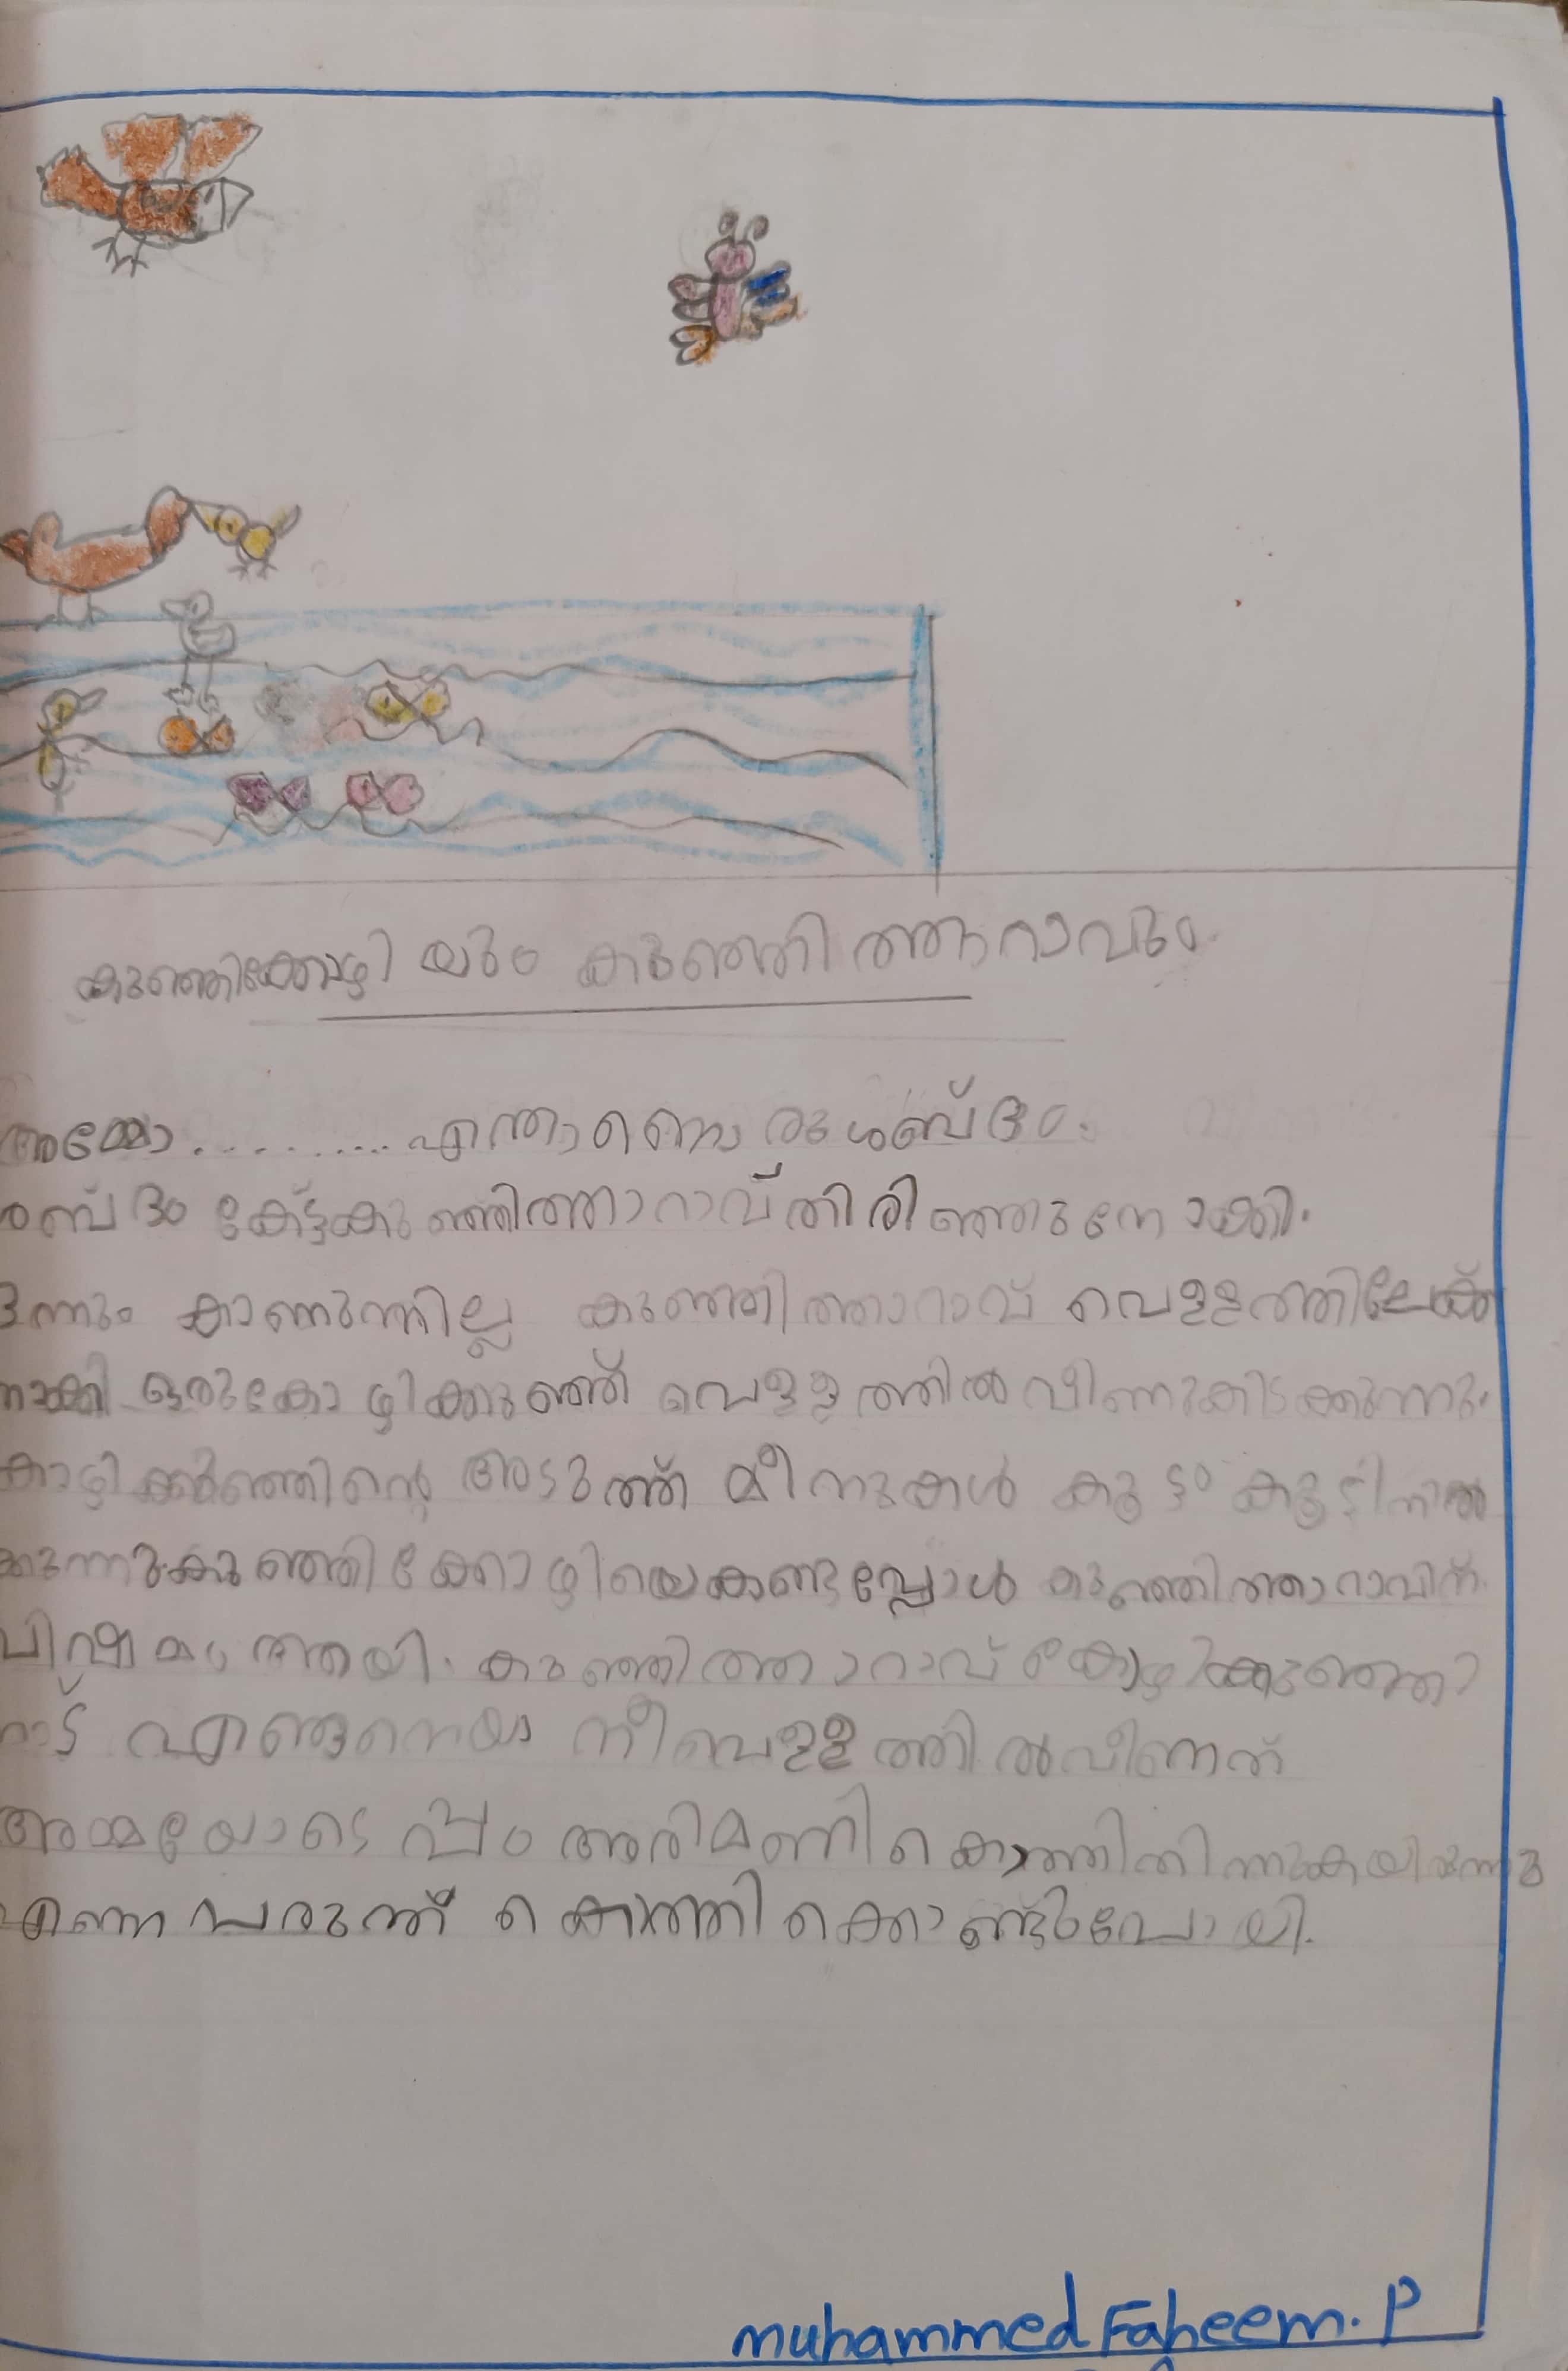 കുഞ്ഞിക്കോഴിയും കുഞ്ഞിത്താറാവും
അമ്മോ.......... എന്താണൊരു ശബ്ദം.
ശബ്ദം കേട്ട കുഞ്ഞിത്താറാവ് തിരിഞ്ഞുനോക്കി.
ന്നും കാണുന്നില്ല കുഞ്ഞിത്താറാവ് വെള്ളത്തിലേക്ക്
നാക്കി ഒരുകോഴിക്കുഞ്ഞ് വെള്ളത്തിൽ വീണുകിടക്കുന്നു.
കാഴിക്കുഞ്ഞിന്റെ അടുത്ത് മീനുകൾ കൂട്ടം കൂടി നിൽ
ക്കുന്നു. കുഞ്ഞിക്കോഴിയെകണ്ടപ്പോൾ കുഞ്ഞിത്താറാവിന്
വിഷമം ആയി. കുഞ്ഞിത്താറാവ് കോഴിക്കുഞ്ഞി
നോട് എങ്ങനെയാ നീ വെള്ളത്തിൽ വീണത്
അമ്മയോടൊപ്പം അരിമണി കൊത്തിതിന്നുകയിരുന്നു
എന്ന പരുന്ത് കൊത്തി കൊണ്ടുപോയി.
muhammed Faheem. P